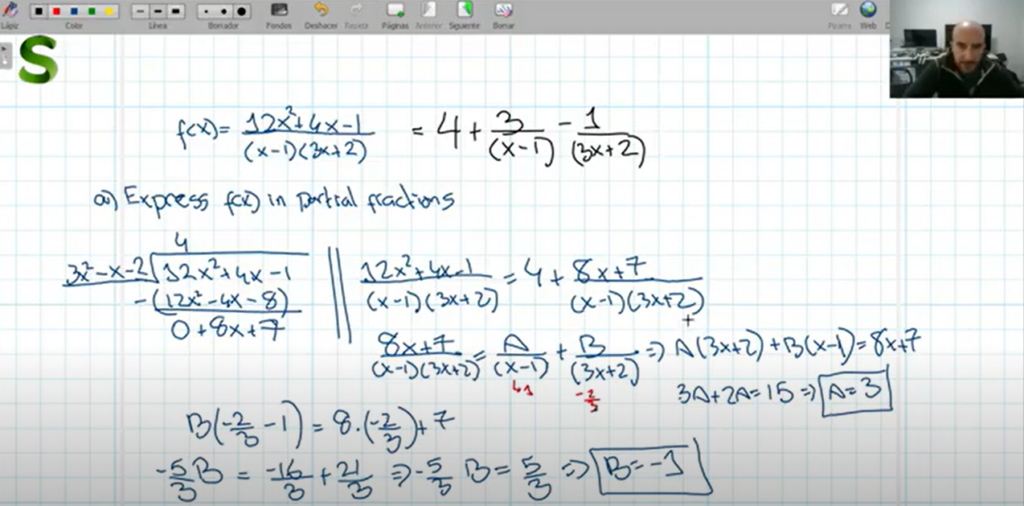 Lápiz Color Línea Borrador Fondos Deshacer Repetir Páginas Anterior Siguiente Borrar Pizarra Web
S
f(x)= 12x²+4x-1 / (x-1)(3x+2) = 4 + 3/(x-1) - 1/(3x+2)
a) Express f(x) in partial fractions
4
3x²-x-2 | 12x²+4x-1
-(12x²-4x-8)
0+8x+7
12x²+4x-1 / (x-1)(3x+2) = 4 + 8x+7 / (x-1)(3x+2)
8x+7 / (x-1)(3x+2) = A/(x-1) + B/(3x+2) => A(3x+2)+B(x-1)=8x+7
↳1 -2/3
3A+2A=15 => A=3
B(-2/3 -1) = 8·(-2/3)+7
-5/3 B = -16/3 + 21/3 => -5/3 B = 5/3 => B=-1